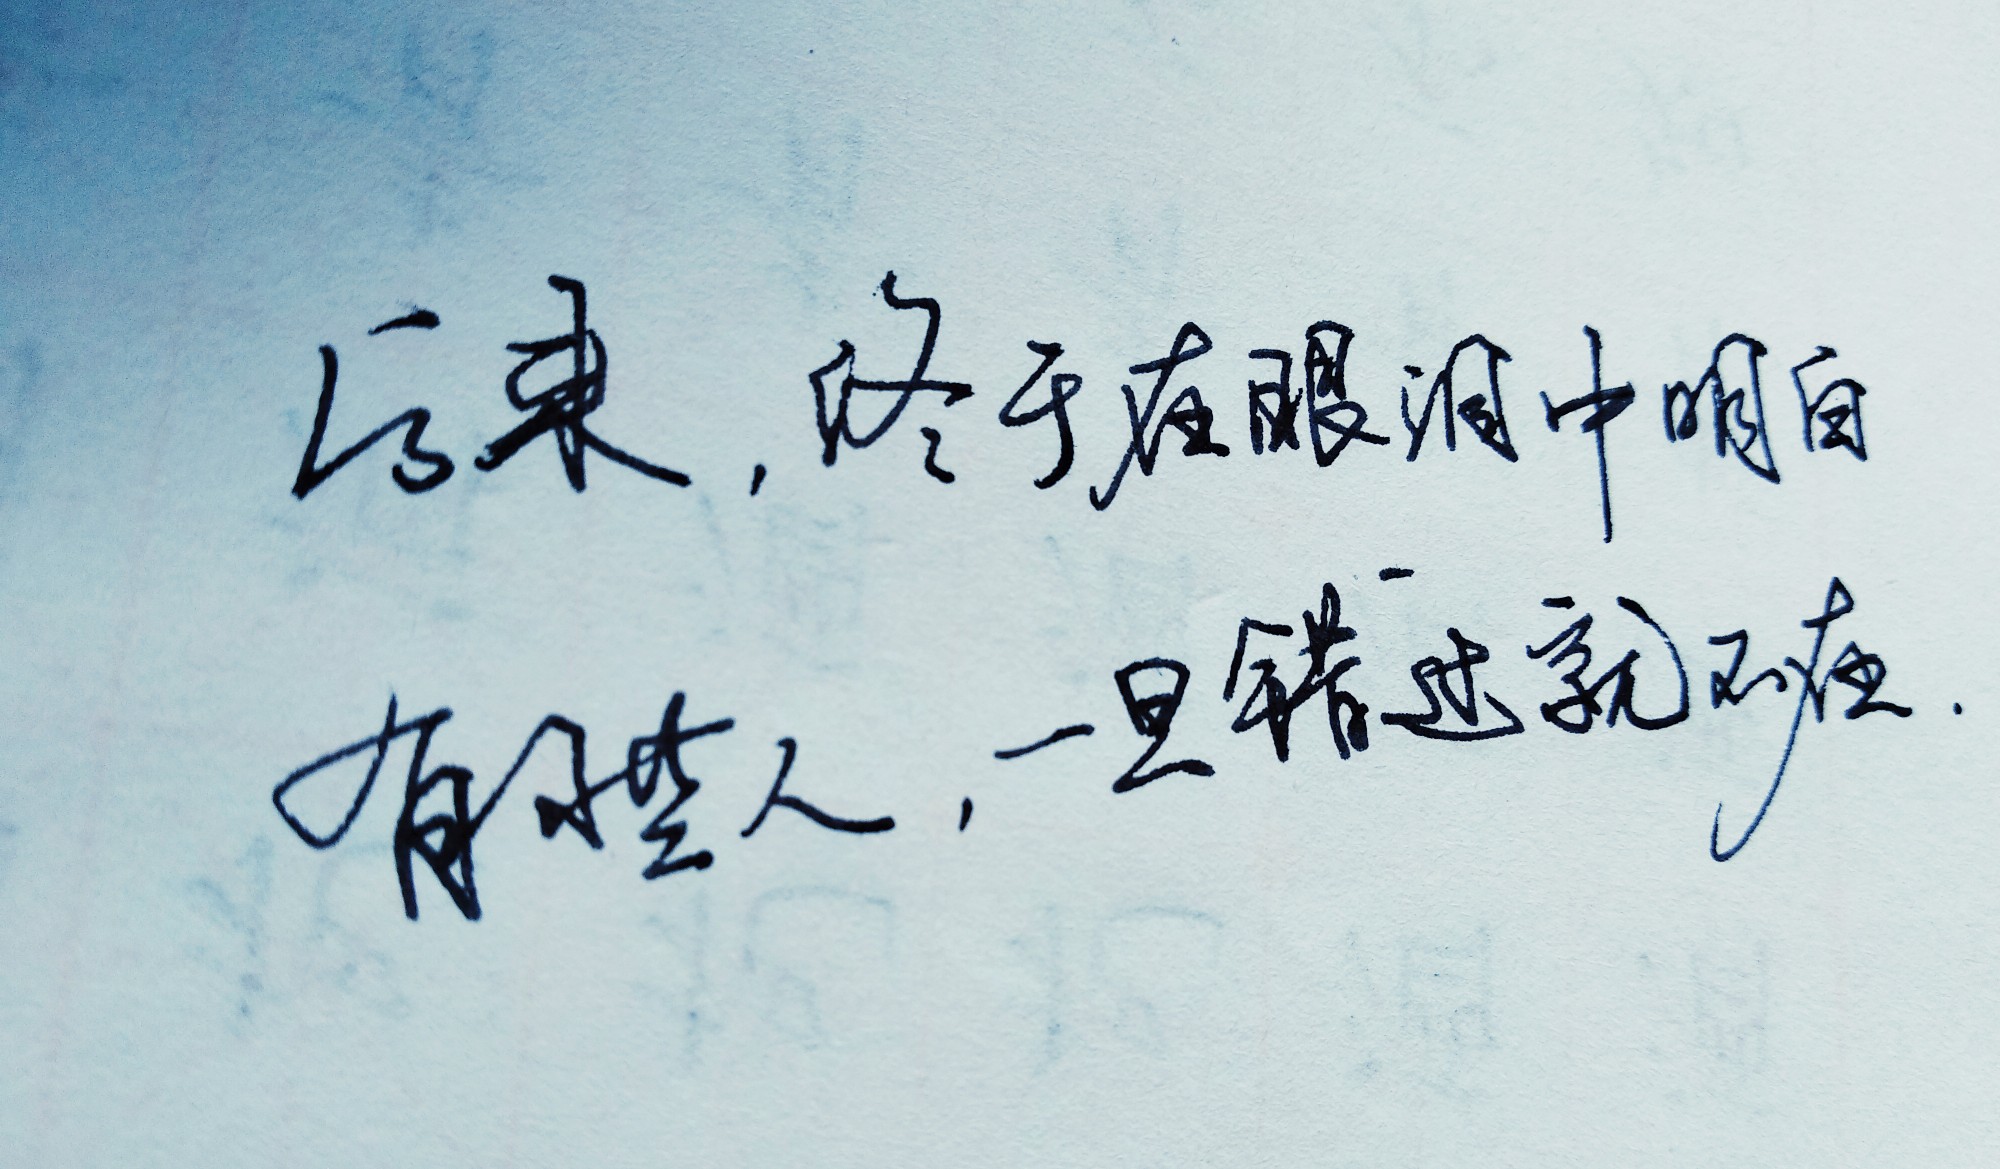 后来，终于在眼泪中明白
有些人，一旦错过就不在.